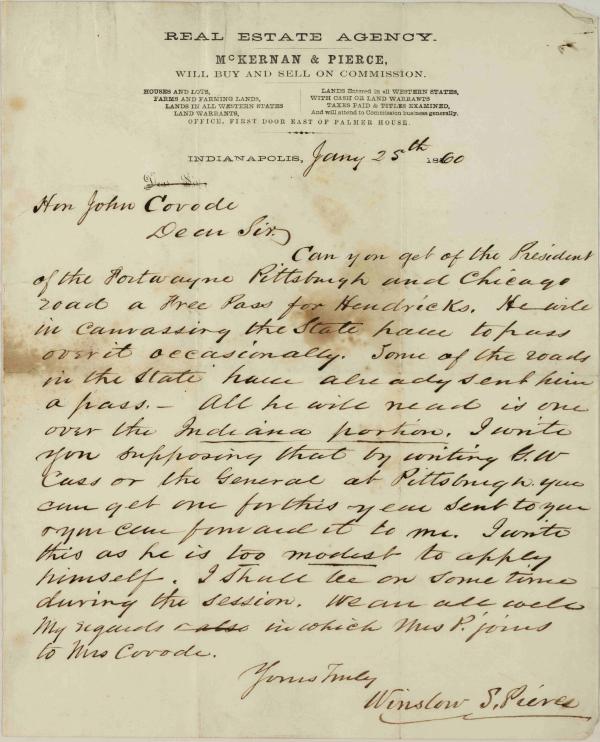 REAL ESTATE AGENCY.
McKERNAN & PIERCE,
WILL BUY AND SELL ON COMMISSION.
HOUSES AND LOTS,
FARMS AND FARMING LANDS,
LANDS IN ALL WESTERN STATES
LAND WARRANTS,
LANDS Entered in all WESTERN STATES,
WITH CASH OR LAND WARRANTS
TAXES PAID & TITLES EXAMINED,
And will attend to Commission business generally.
OFFICE, FIRST DOOR EAST OF PALMER HOUSE.
INDIANAPOLIS, Jany 25th 1860
Dear Sir
Hon John Covode
Dear Sir
Can you get of the President
of the Fortwayne Pittsburgh and Chicago
road a Free Pass for Hendricks. He will
in canvassing the State have to pass
over it occasionally. Some of the roads
in the State have already sent him
a pass. – All he will nead is one
over the Indiana portion. I write
you supposing that by writing G.W
Cass or the General at Pittsburgh you
can get one for this year sent to you
& you can forward it to me. I write
this as he is too modest to apply
himself. I shall be on some time
during the session. We are all well
My regards also in which Mrs P. joins
to Mrs Covode.
Yours Truly
Winslow S. Pierce